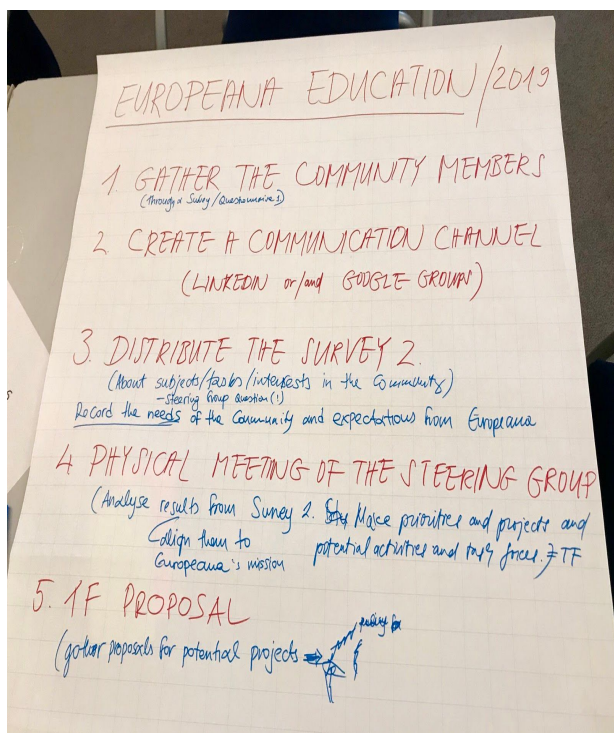 EUROPEANA EDUCATION/2019
1. GATHER THE COMMUNITY MEMBERS
(through a Survey/Questionnaire 1)
2. CREATE A COMMUNICATION CHANNEL
(LINKEDIN or/and GOOGLE GROUPS)
3. DISTRIBUTE THE SURVEY 2.
(About subjects/tasks/interests in the Community)
- Steering Group Question (!)
Record the needs of the Community and expectations from Europeana
4 PHYSICAL MEETING OF THE STEERING GROUP
(Analyse results from Survey 2. Make priorities and projects and
align them to potential activities and task forces. = TF
Europeana's mission
5. TF PROPOSAL
(gather proposals for potential projects